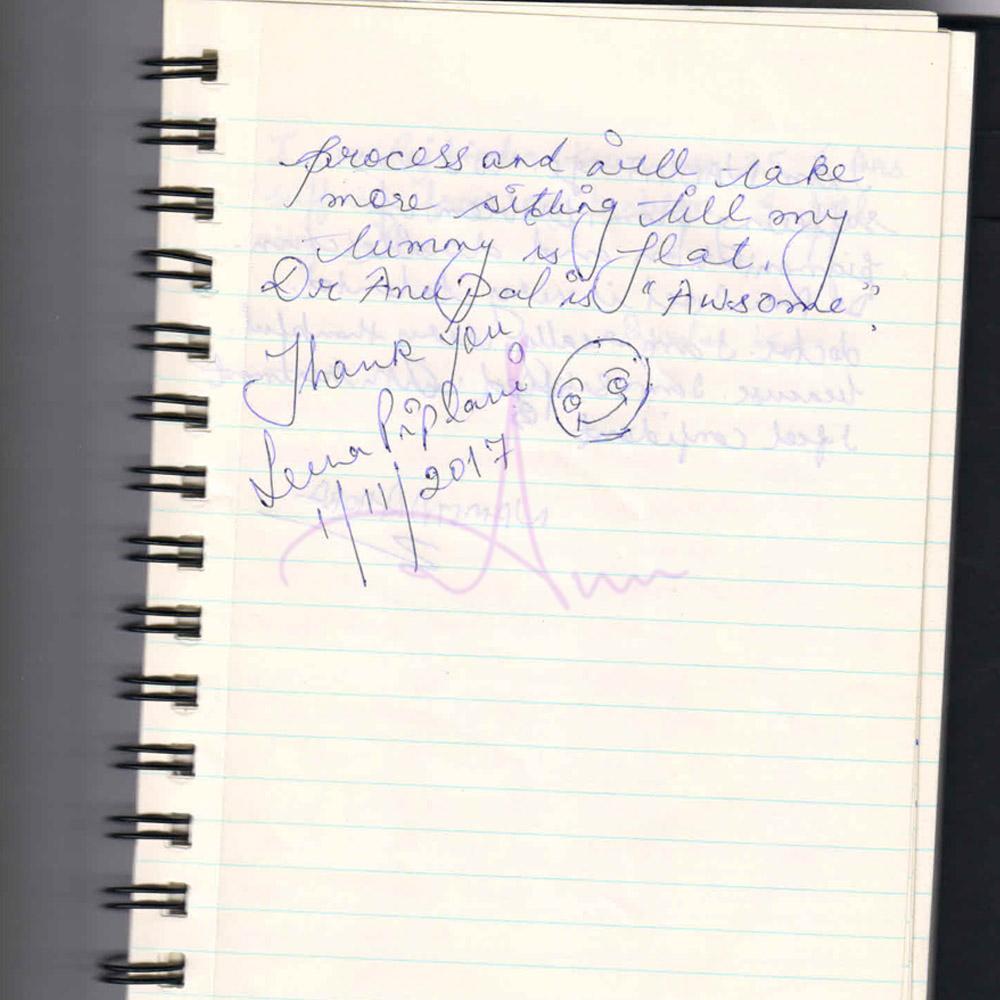 process and will take
more sitting till my
tummy is flat.
Dr Anu Pal is "Awsome".
Thank You
Leena Piplani
1/11/2017